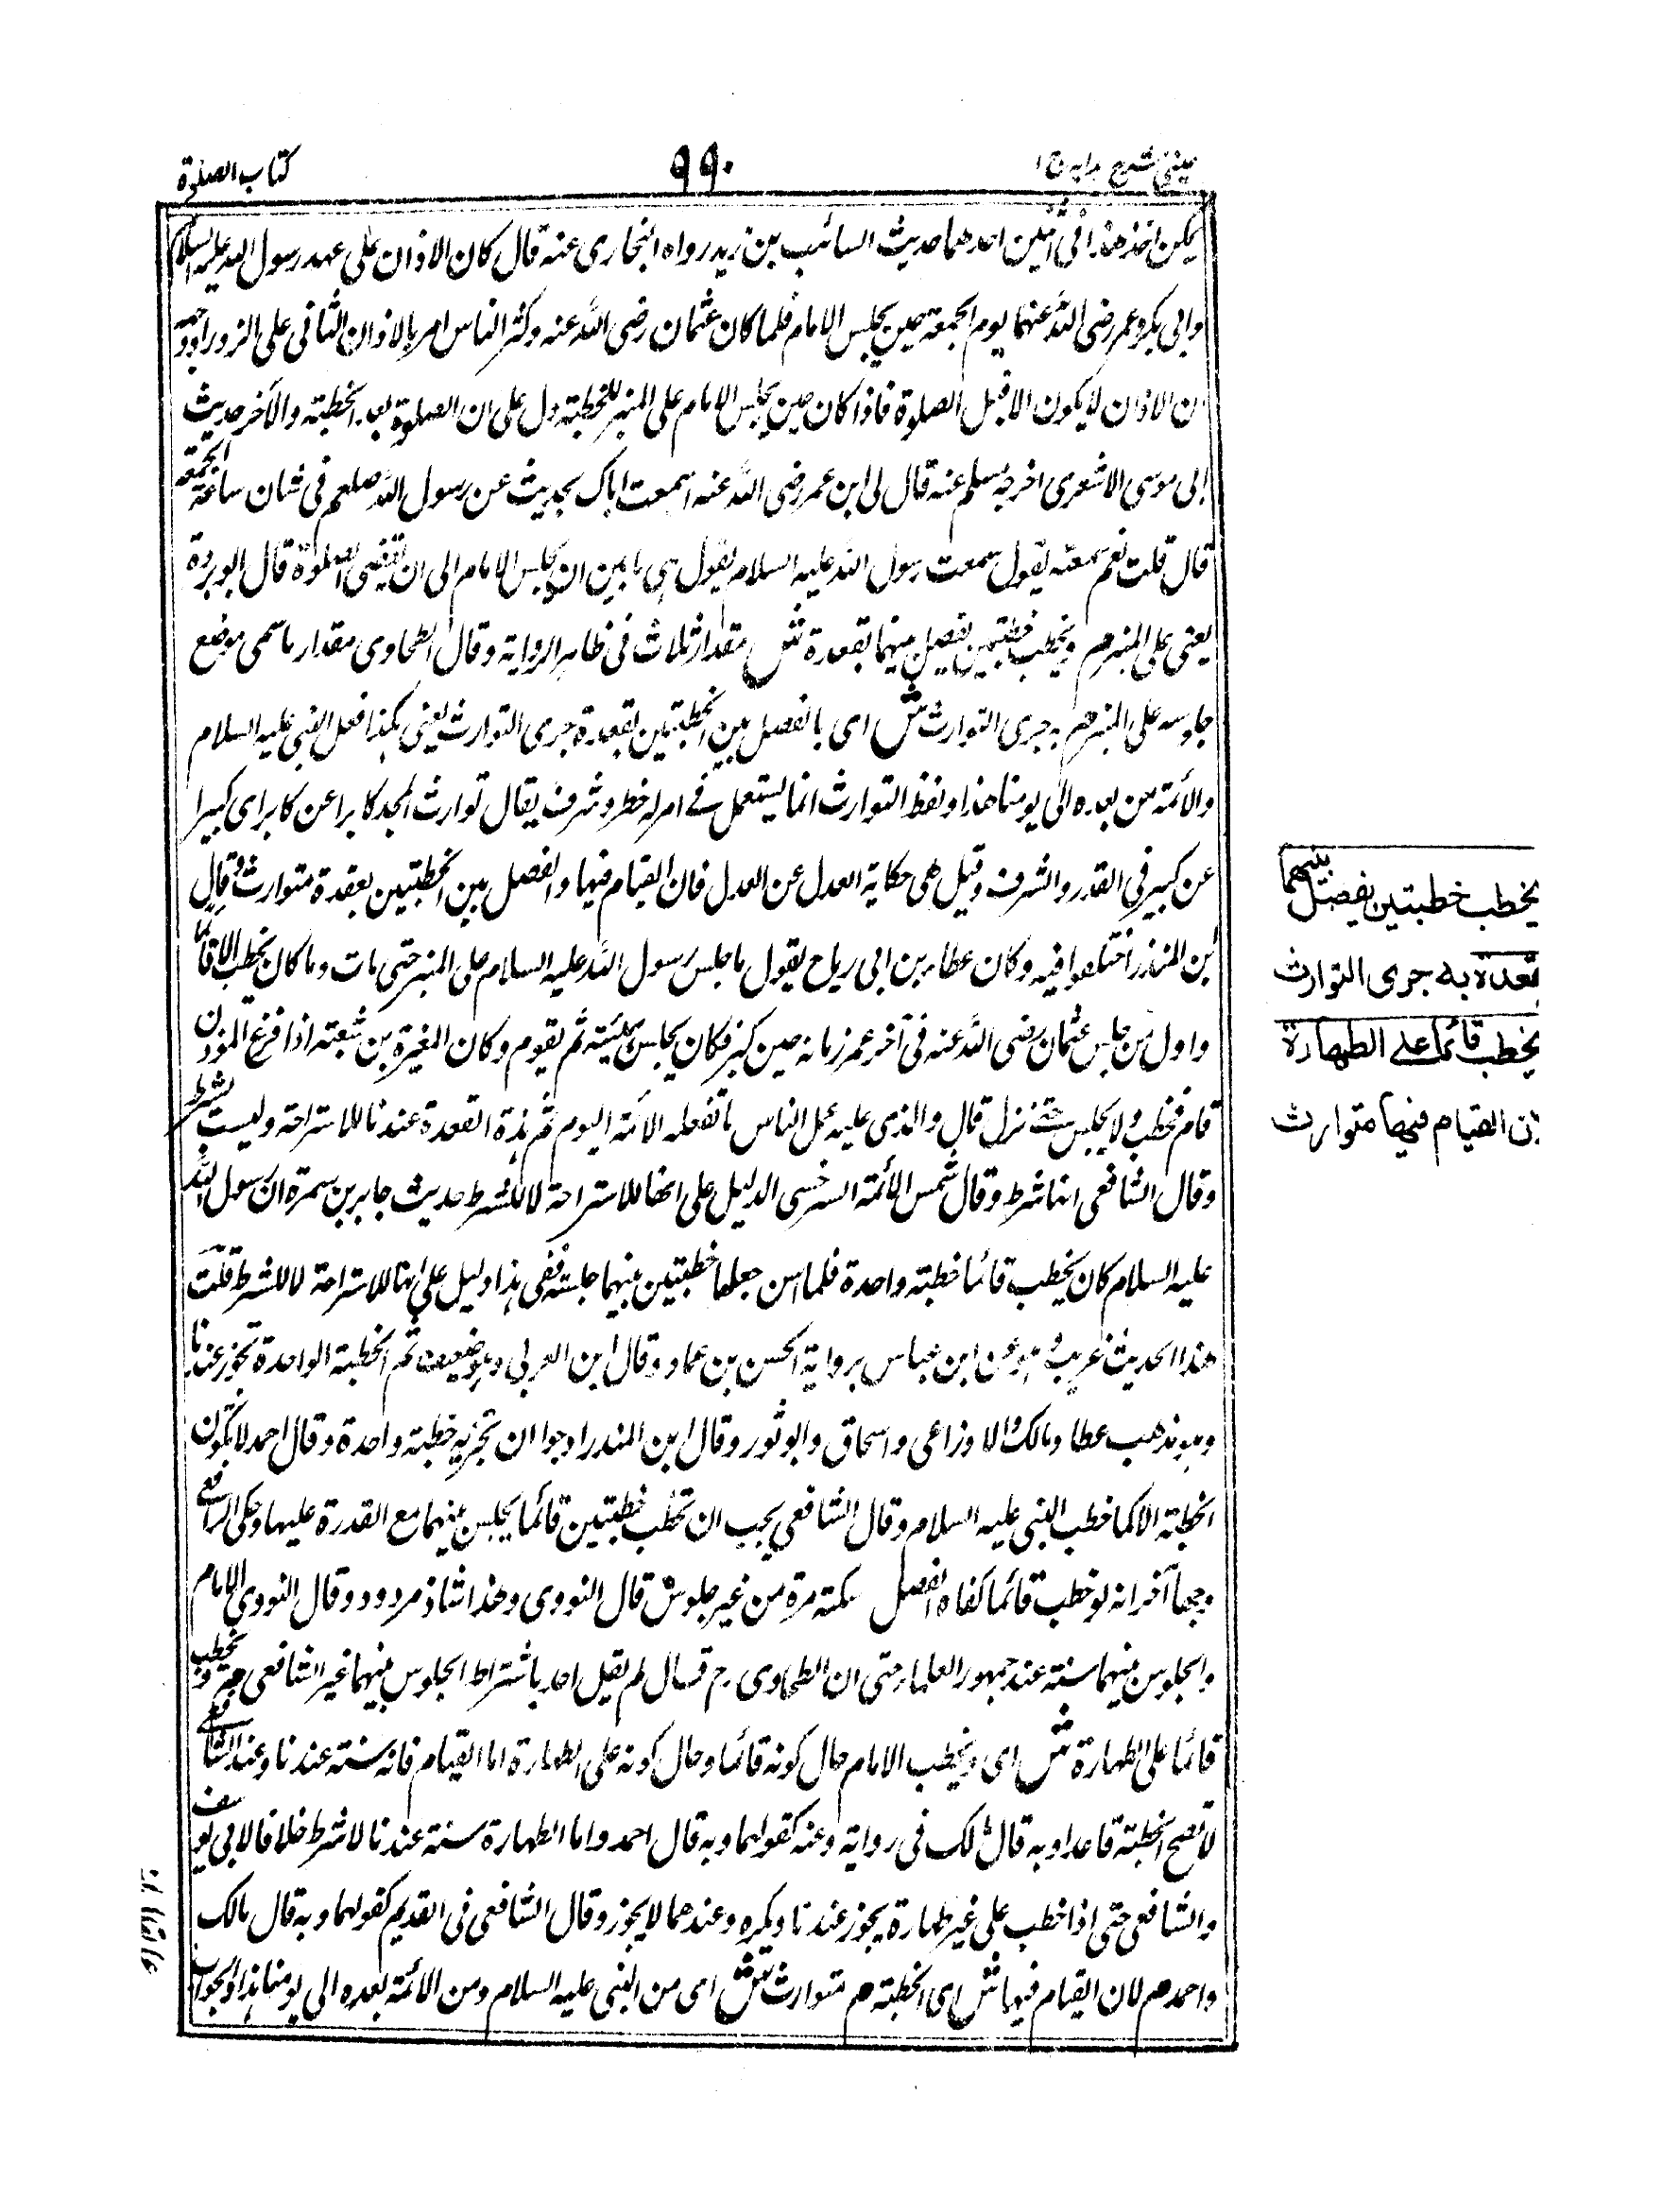 عینی شرح ہدایہ ج ۱
۹۹۰
کتاب الصلوة
یمکن اخذ هذا فی اثنین احدهما حدیث السائب بن زید رواه البخاری عنه قال کان الاذان علی عهد رسول الله علیه السلام
وابی بکر وعمر رضی الله عنهما یوم الجمعة حین یجلس الامام فلما کان عثمان رضی الله عنه وکثر الناس امر بالاذان الثانی علی الزوراء
ان الاذان لا یکون الا قبل الصلوة فاذا کان حین یجلس الامام علی المنبر للخطبة دل علی ان الصلوة بعد الخطبة والآخر حدیث
ابی موسی الاشعری اخرجه مسلم عنه قال لی ابن عمر رضی الله عنه اسمعت اباک یحدث عن رسول الله صلعم فی شان ساعة الجمعة
قال قلت نعم سمعته یقول سمعت رسول الله علیه السلام یقول هی ما بین ان یجلس الامام الی ان تقضی الصلوة قال ابو بردة
یعنی علی المنبر م ویخطب خطبتین یفصل بینهما بقعدة ش مقدار ثلاث فی ظاهر الروایة وقال الطحاوی مقدار ما یمس موضع
جلوسه علی المنبر م به جری التوارث ش ای بالفصل بین الخطبتین بقعدة جری التوارث یعنی هکذا فعل النبی علیه السلام
والائمة من بعده الی یومنا هذا ولفظ التوارث انما یستعمل فے امر له خطر وشرف یقال توارث المجد کابرا عن کابر ای کبیرا
عن کبیر فی القدر والشرف وقیل هی حکایة العدل عن العدل فان القیام فیها والفصل بین الخطبتین بقعدة متوارث وقال
ابن المنذر اختلفوا فیه وکان عطاء بن ابی رباح یقول ما جلس رسول الله علیه السلام علی المنبر حتی مات وما کان یخطب الا قائما
واول من جلس عثمان رضی الله عنه فی آخر عمر زمانه حین کبر فکان یجلس هنیئة ثم یقوم وکان المغیرة بن شعبة اذا فرغ المؤذن
قام فخطب ولا یجلس حتے نزل قال والذی علیه عمل الناس ما تفعله الائمة الیوم ثم هذه القعدة عندنا للاستراحة ولیست بشرط
وقال الشافعی انها شرط وقال شمس الائمة السرخسی الدلیل علی انها للاستراحة لا للشرط حدیث جابر بن سمرة ان رسول الله
علیه السلام کان یخطب قائما خطبة واحدة فلما اسن جعلها خطبتین بینهما جلسة ففی هذا دلیل علی انها للاستراحة لا للشرط قلت
هذا الحدیث غریب وهو عن ابن عباس بروایة الحسن بن عماد وقال ابن العربی وهو ضعیف ثم الخطبة الواحدة تجوز عندنا
وهو مذهب عطا ومالک والاوزاعی واسحاق وابو ثور وقال ابن المنذر ارجوا ان تجزیه خطبة واحدة وقال احمد لا تکون
الخطبة الا کما خطب النبی علیه السلام وقال الشافعی یجب ان تخطب خطبتین قائما یجلس بینهما مع القدرة علیها وحکی الرافعی
وجها آخر انه لو خطب قائما کفاه الفصل سکتة مرة من غیر جلوس قال النووی وهذا شاذ مردود وقال النووی الامام
والجلوس بینهما سنة عند جمهور العلماء حتی ان الطحاوی رح قال لم یقل احد باشتراط الجلوس بینهما غیر الشافعی م ویخطب
قائما علی الطهارة ش ای ویخطب الامام حال کونه قائما وحال کونه علی الطهارة اما القیام فانه سنة عندنا وعند الشافعی
لا تصح الخطبة قاعدا وبه قال مالک فی روایة وعنه کقولهما وبه قال احمد واما الطهارة سنة عندنا لا شرط خلافا لابی یوسف
والشافعی حتی اذا خطب علی غیر طهارة یجوز عندنا ویکره وعندهما لا یجوز وقال الشافعی فی القدیم کقولهما وبه قال مالک
واحمد م لان القیام فیها ش ای الخطبة م متوارث ش ای من النبی علیه السلام ومن الائمة بعده الی یومنا هذا والجواب
یخطب خطبتین یفصل بینهما
بقعدة به جری التوارث
یخطب قائما علے الطهارة
لان القیام فیها متوارث